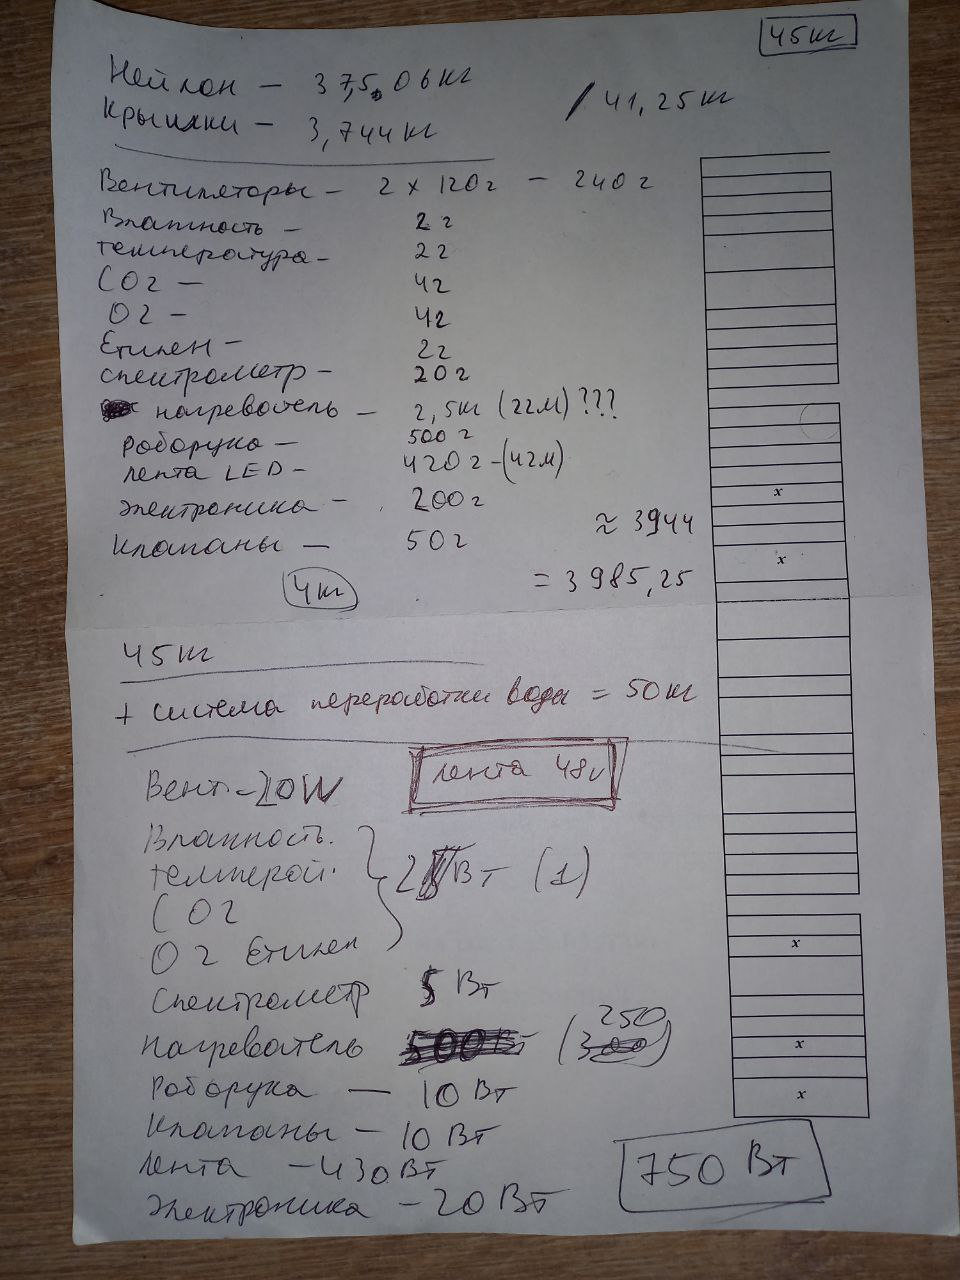 45кг
Нейлон – 37,5.06кг
/ 41,25кг
Крышки – 3,744кг
Вентиляторы – 2 x 120г – 240г
Влажность – 2г
температура – 2г
CO2 – 4г
O2 – 4г
Етилен – 2г
спектрометр – 20г
нагреватель – 2,5кг (22м)???
Роборука – 500г
лента LED – 420г – (42м)
Электроника – 200г
≈ 3944
Клапаны – 50г
4кг
= 3985,25
45кг
+ система переработки воды = 50кг
лента 48v
Вент. – 20W
Влажность.
температ.
2 Вт (1)
CO2
O2 Етилен
Спектрометр 5 Вт
250
Нагреватель 500Вт (300)
Роборука – 10 Вт
Клапаны – 10 Вт
Лента – 430 Вт
750 Вт
Электроника – 20 Вт
x
x
x
x
x